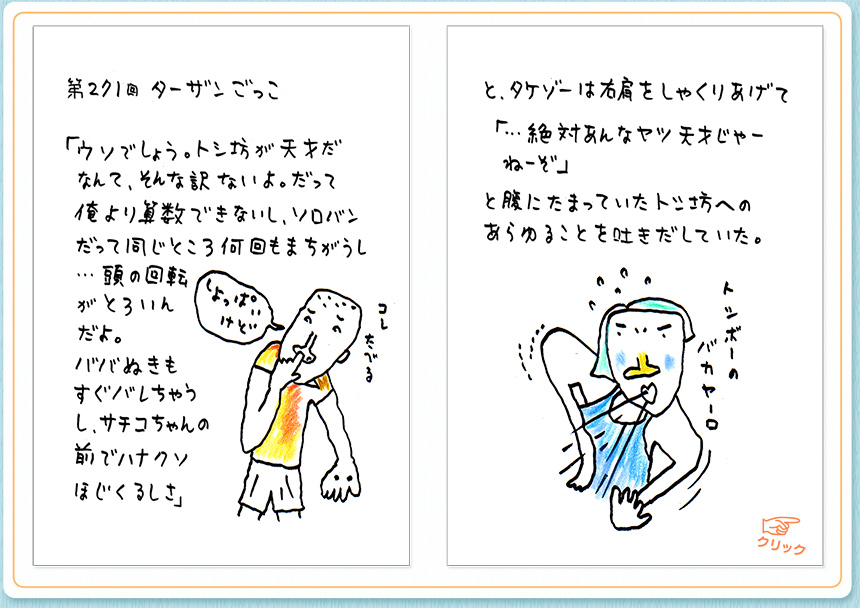 第271回 ターザンごっこ
「ウソでしょう。トシ坊が天才だ
なんて、そんな訳ないよ。だって
俺より算数できないし、ソロバン
だって同じところ何回もまちがうし
…頭の回転
がとろいん
だよ。
ババぬきも
すぐバレちゃう
し、サチコちゃんの
前でハナクソ
ほじくるしさ」
しょっぱい
けどぞ
コレ
たべる
と、タケゾーは右肩をしゃくりあげて
「…絶対あんなヤツ天才じゃー
ねーぞ」
と腹にたまっていたトシ坊への
あらゆることを吐きだしていた。
トシボーの
バカヤーロ
クリック